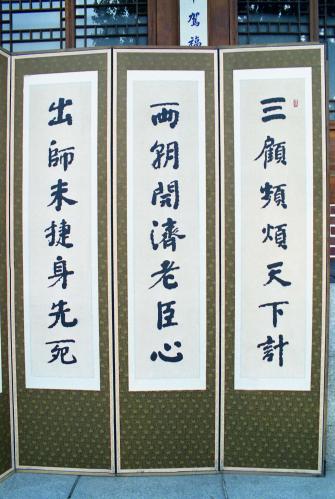 三顧頻煩天下計
兩朝開濟老臣心
出師未捷身先死
駕福